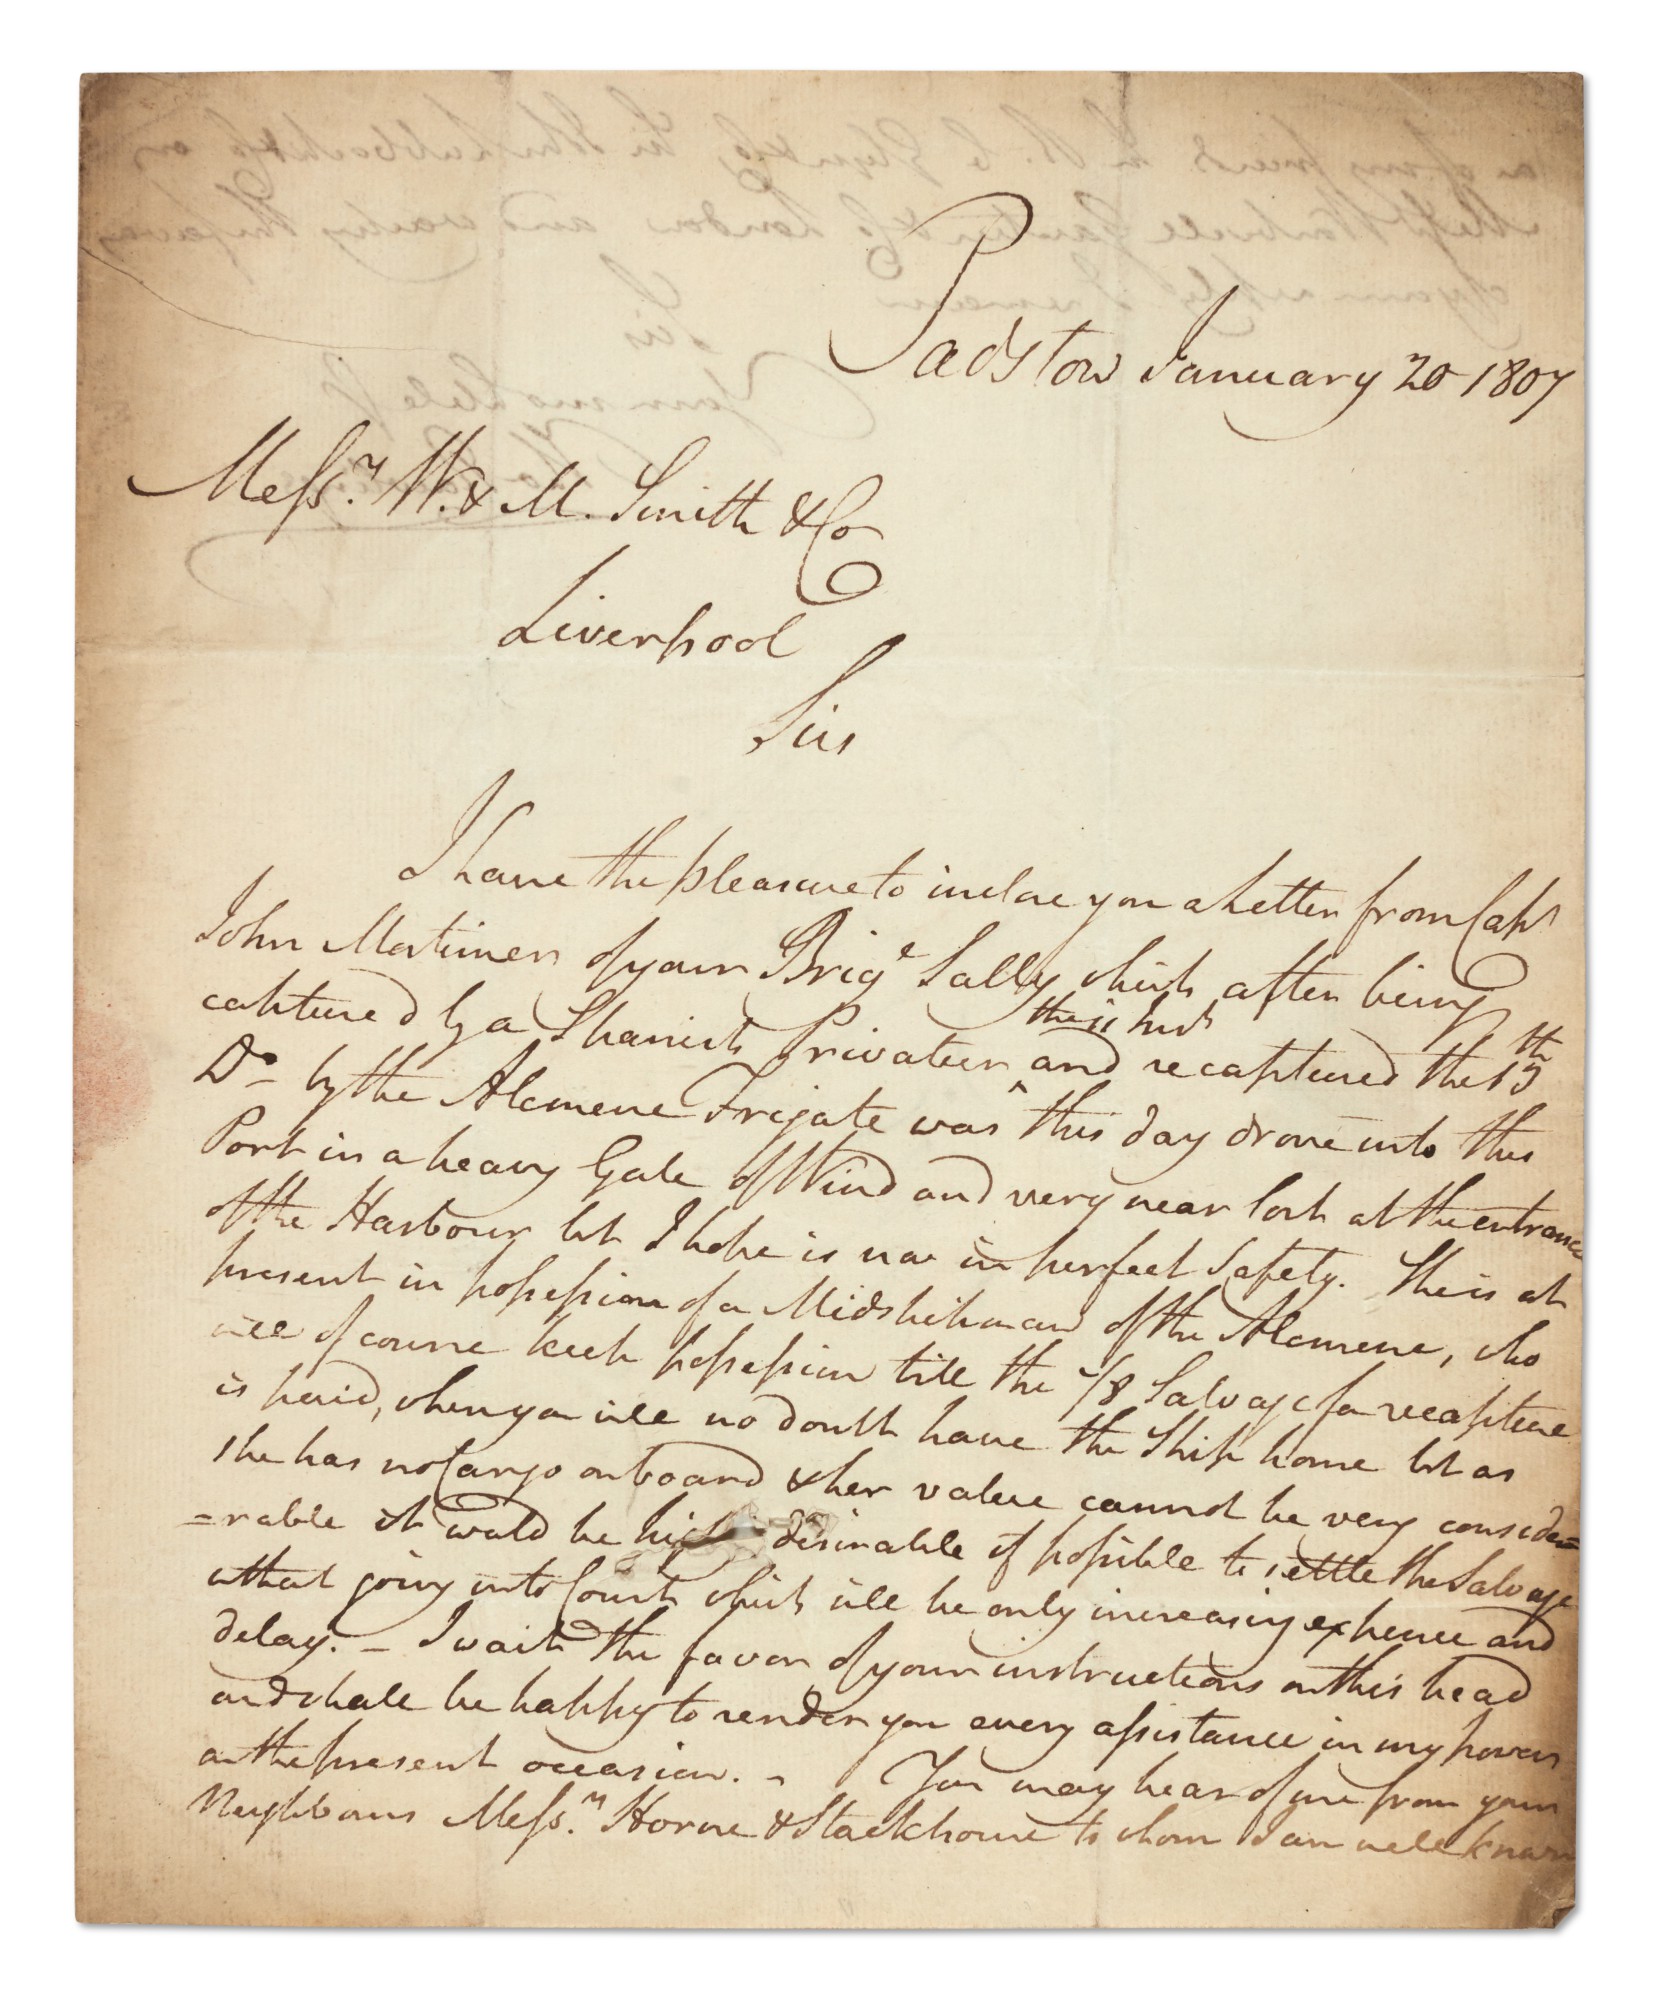 Padstow January 20 1807
Messrs. W. & M. Smith & Co
Liverpool
Sirs
I have the pleasure to inclose you a Letter from Capt
John Mortimer of your Brige Sally which after being
captured by a Spanish Privateer the 11 Inst and recaptured the 13th
Do by the Alcmene Frigate was this day drove into this
Port in a heavy Gale of Wind and very near lost at the entrance
of the Harbour but I hope is now in perfect Safety. She is at
present in possession of a Midshipman of the Alcmene, who
will of course keep possession till the 1/8 Salvage for recapture
is paid, when you will no doubt have the Ship home but as
she has no Cargo on board & her value cannot be very conside=
=rable it would be desirable if possible to settle the Salvage
without going into Court which will be only increasing expence and
delay. – I wait the favor of your instructions on this head
and shall be happy to render you every assistance in my power
on the present occasion. – You may hear of me from your
Neighbours Messrs. Horne & Stackhouse to whom I am well known